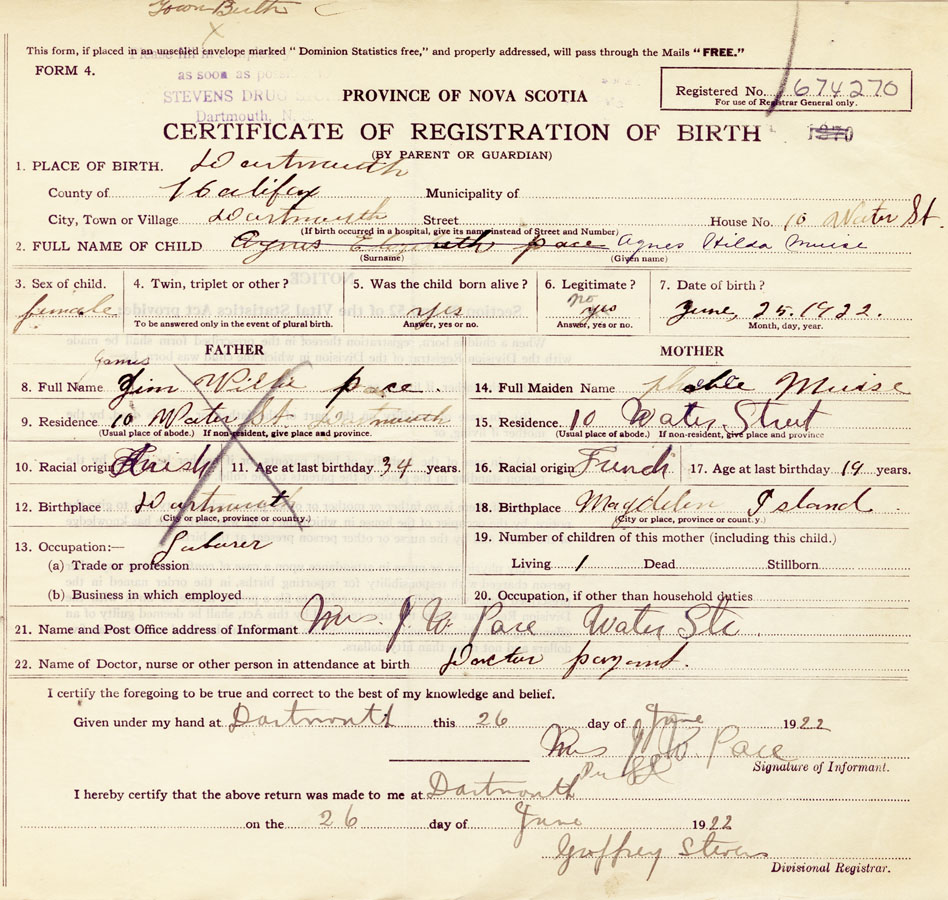 Town Birth
This form, if placed in an unsealed envelope marked "Dominion Statistics free," and properly addressed, will pass through the Mails "FREE."
FORM 4.
as soon as
STEVENS DRUG
Dartmouth, N. S.
Registered No. 674270
For use of Registrar General only.
PROVINCE OF NOVA SCOTIA
CERTIFICATE OF REGISTRATION OF BIRTH
1270
(BY PARENT OR GUARDIAN)
1. PLACE OF BIRTH. Dartmouth
County of Halifax Municipality of
City, Town or Village Dartmouth Street House No. 10 Water St.
(If birth occurred in hospital, give its name instead of Street and Number)
2. FULL NAME OF CHILD Agnus Elizabeth pace Agnes Hilda Muise
(Surname) (Given name)
3. Sex of child. female
4. Twin, triplet or other?
To be answered only in the event of plural birth.
5. Was the child born alive? yes
Answer, yes or no.
6. Legitimate? no yes
Answer, yes or no.
7. Date of birth? June, 25. 1922.
Month, day, year.
FATHER
James
8. Full Name Jim Willie pace
9. Residence 10 Water St. Dartmouth
(Usual place of abode.) If non-resident, give place and province.
10. Racial origin Irish 11. Age at last birthday 34 years.
12. Birthplace Dartmouth
(City or place, province or country.)
13. Occupation:— Laburer
(a) Trade or profession
(b) Business in which employed
MOTHER
14. Full Maiden Name pheble Muise
15. Residence 10 Water Street
(Usual place of abode.) If non-resident, give place and province
16. Racial origin French 17. Age at last birthday 19 years.
18. Birthplace Magdelen Island
(City or place, province or country.)
19. Number of children of this mother (including this child.)
Living 1 Dead Stillborn
20. Occupation, if other than household duties
21. Name and Post Office address of Informant Mrs. J. W. Pace Water Str.
22. Name of Doctor, nurse or other person in attendance at birth Doctor
I certify the foregoing to be true and correct to the best of my knowledge and belief.
Given under my hand at Dartmouth this 26 day of June 1922
Mrs J W Pace
Signature of Informant.
I hereby certify that the above return was made to me at Dartmouth
on the 26 day of June 1922
Geoffrey Stevens
Divisional Registrar.